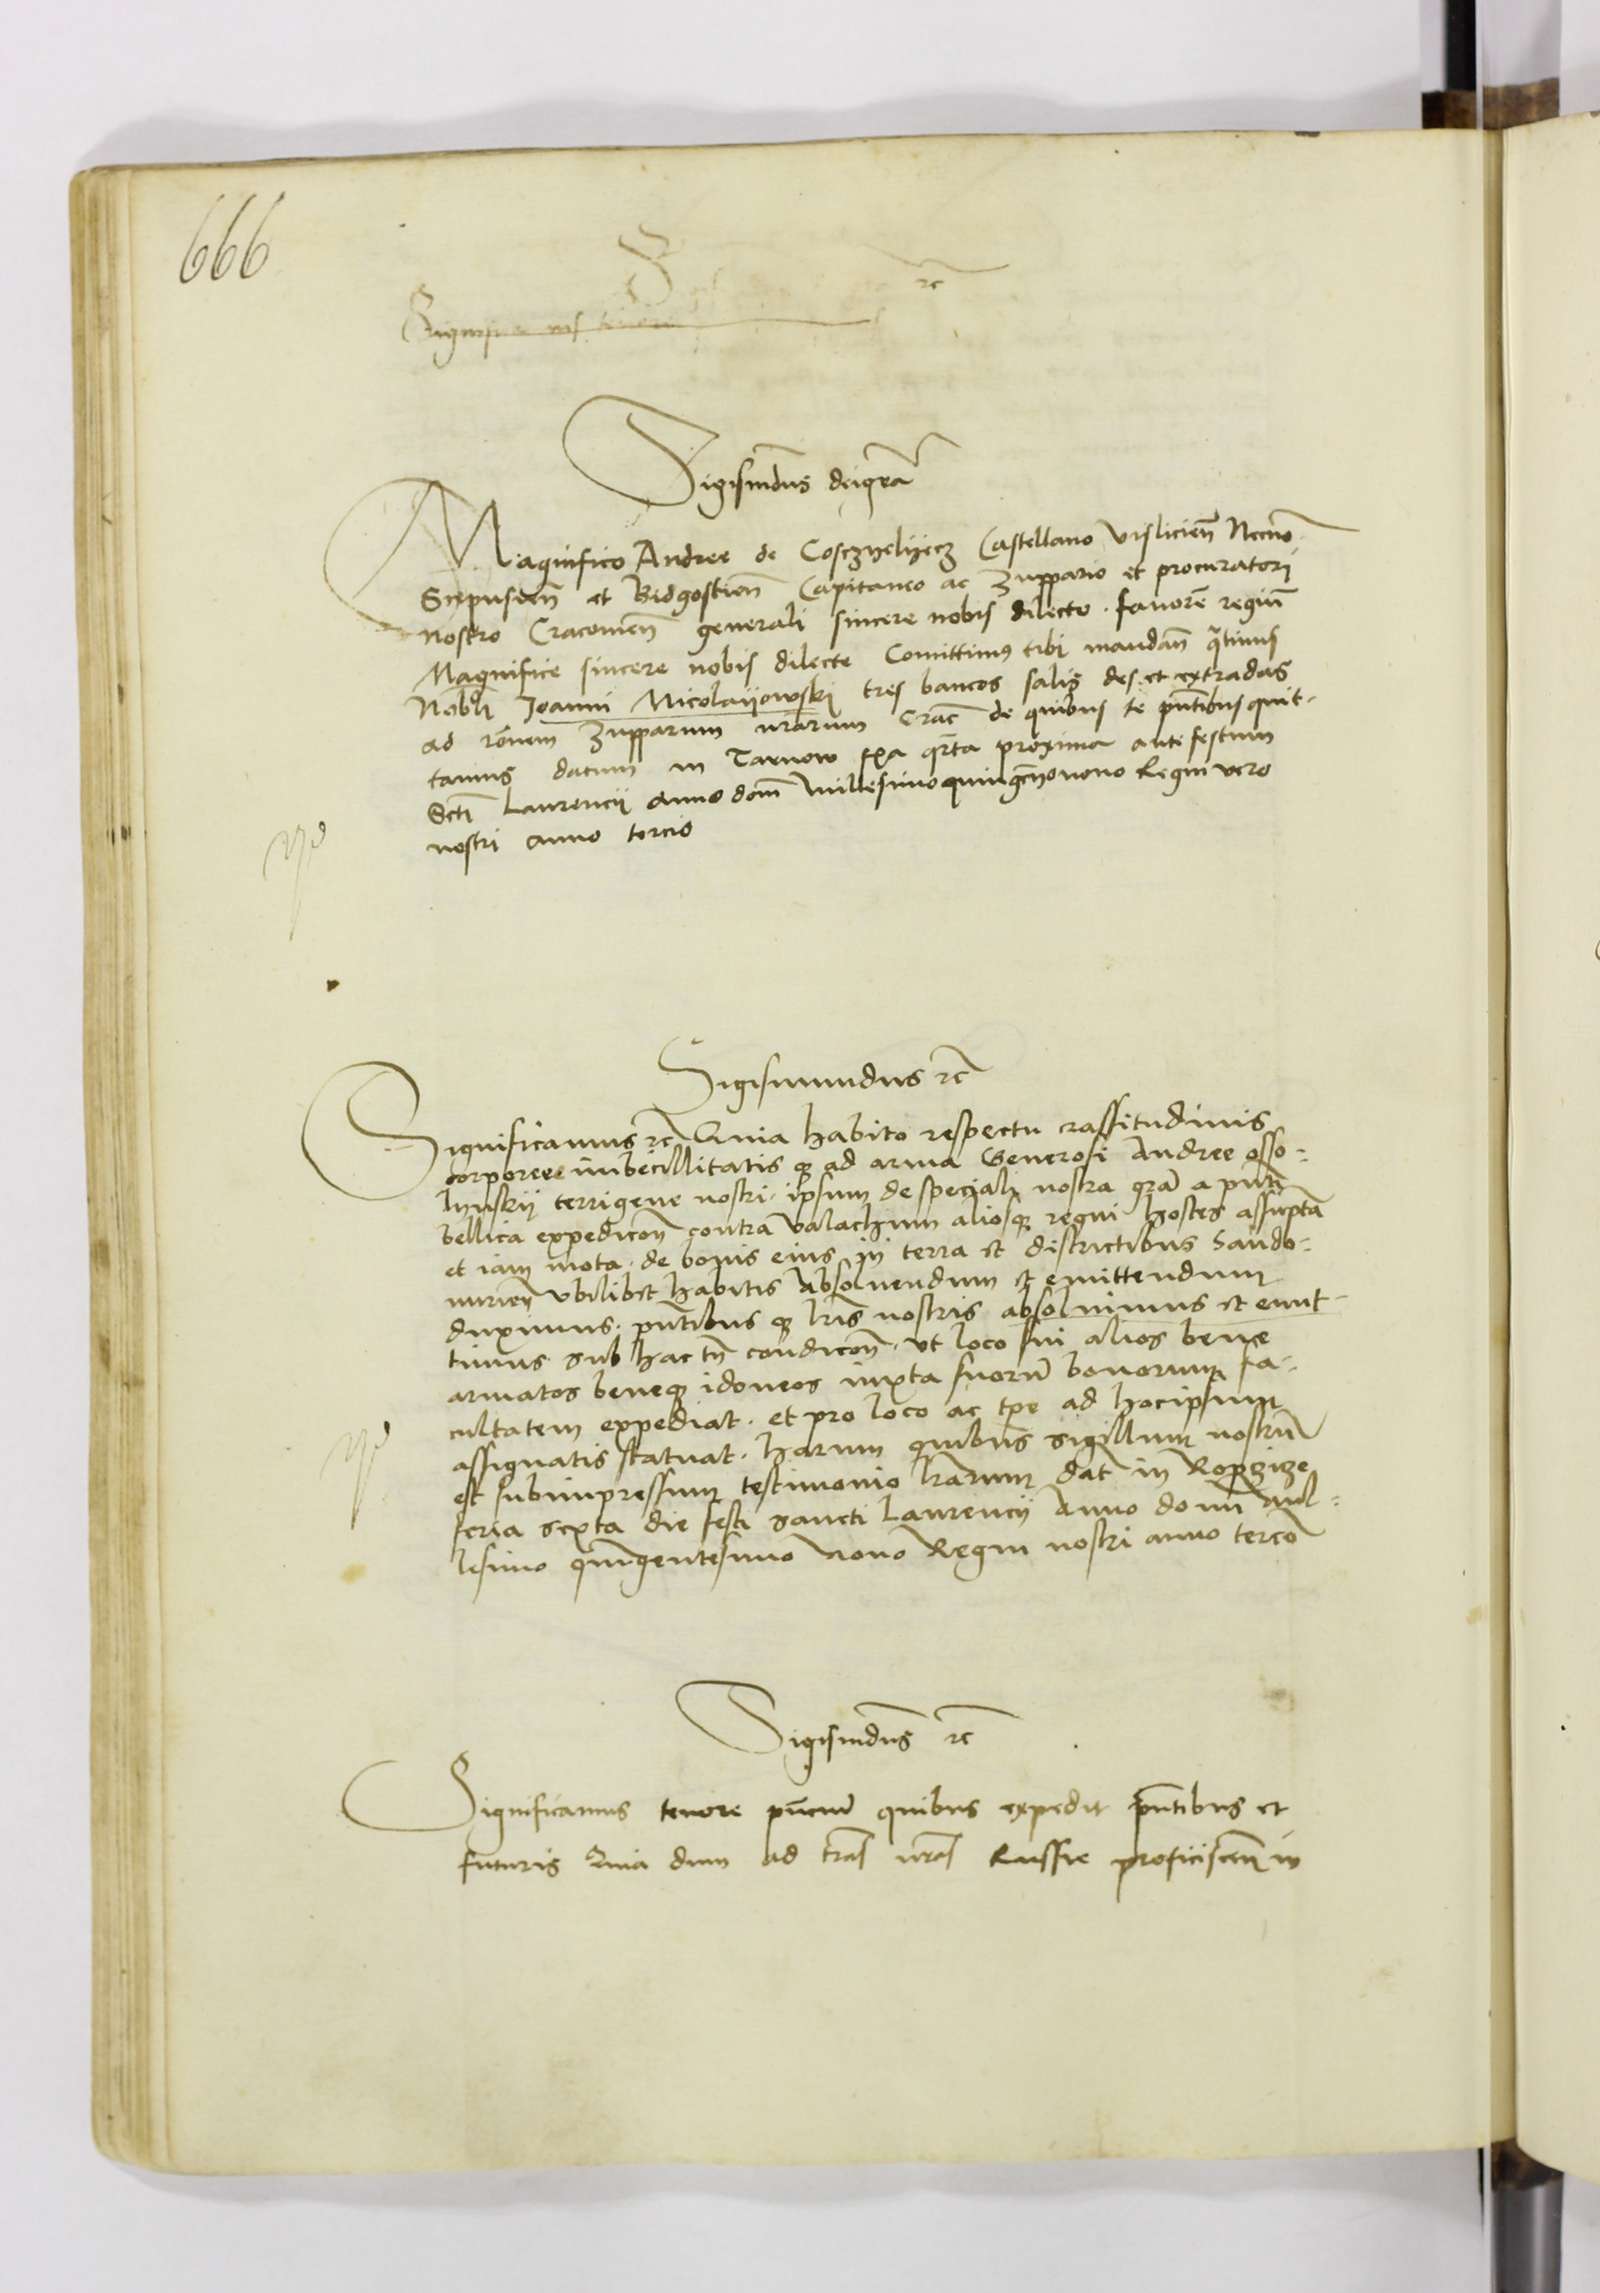 666
Sigismundus dei gra
Magnifico Andree de Cosczyelyecz Castellano Vislicien Necno
Scepusien et Bidgostien Capitaneo ac Zuppario et procuratori
nostro Cracovien generali sincere nobis dilecto. favore regiu
Magnifice sincere nobis dilecte Comittimus tibi mandan qtinus
Nobli Joanni Micolaiiowski tres bancos salis des et extradas
ad ronem Zupparum nrarum Crac de quibus te pntibus quit-
tamus datum in Tarnow fxa qrta proxima ante festum
Scti Laurencii anno dom Millesimo quingeno nono Regni vero
nostri anno tercio
Sigismundus rc
Significamus rc Quia habito respectu crassitudinis
corporee imbecillitatis q ad arma Generosi Andree osso-
lynskij terrigene nostri. ipsum de speciali nostra gra a pnti
bellica expedicon contra valachum aliosq regni hostes assupta
et iam mota. de bonis eius in terra et districtibus Sando-
mirien vbilibet habitis absoluendum et emittendum
duximus. pntibus q lris nostris absoluimus et emit-
timus sub hac tn condicon. vt loco sui alios bene
armatos beneq idoneos iuxta suoru bonorum fa-
cultatem expediat. et pro loco ac tpe ad hoc ipsum
assignatis statuat. harum quibus sigillum nostru
est subimpressum testimonio lrarum dat in Ropczicze
feria sexta die festi sancti Laurencij Anno domi mil-
lesimo quingentesimo nono Regni nostri anno tercio
Sigismdus rc
Significamus tenore pncium quibus expedit pntibus et
futuris Quia dum ad tras nras Russie proficiscen in